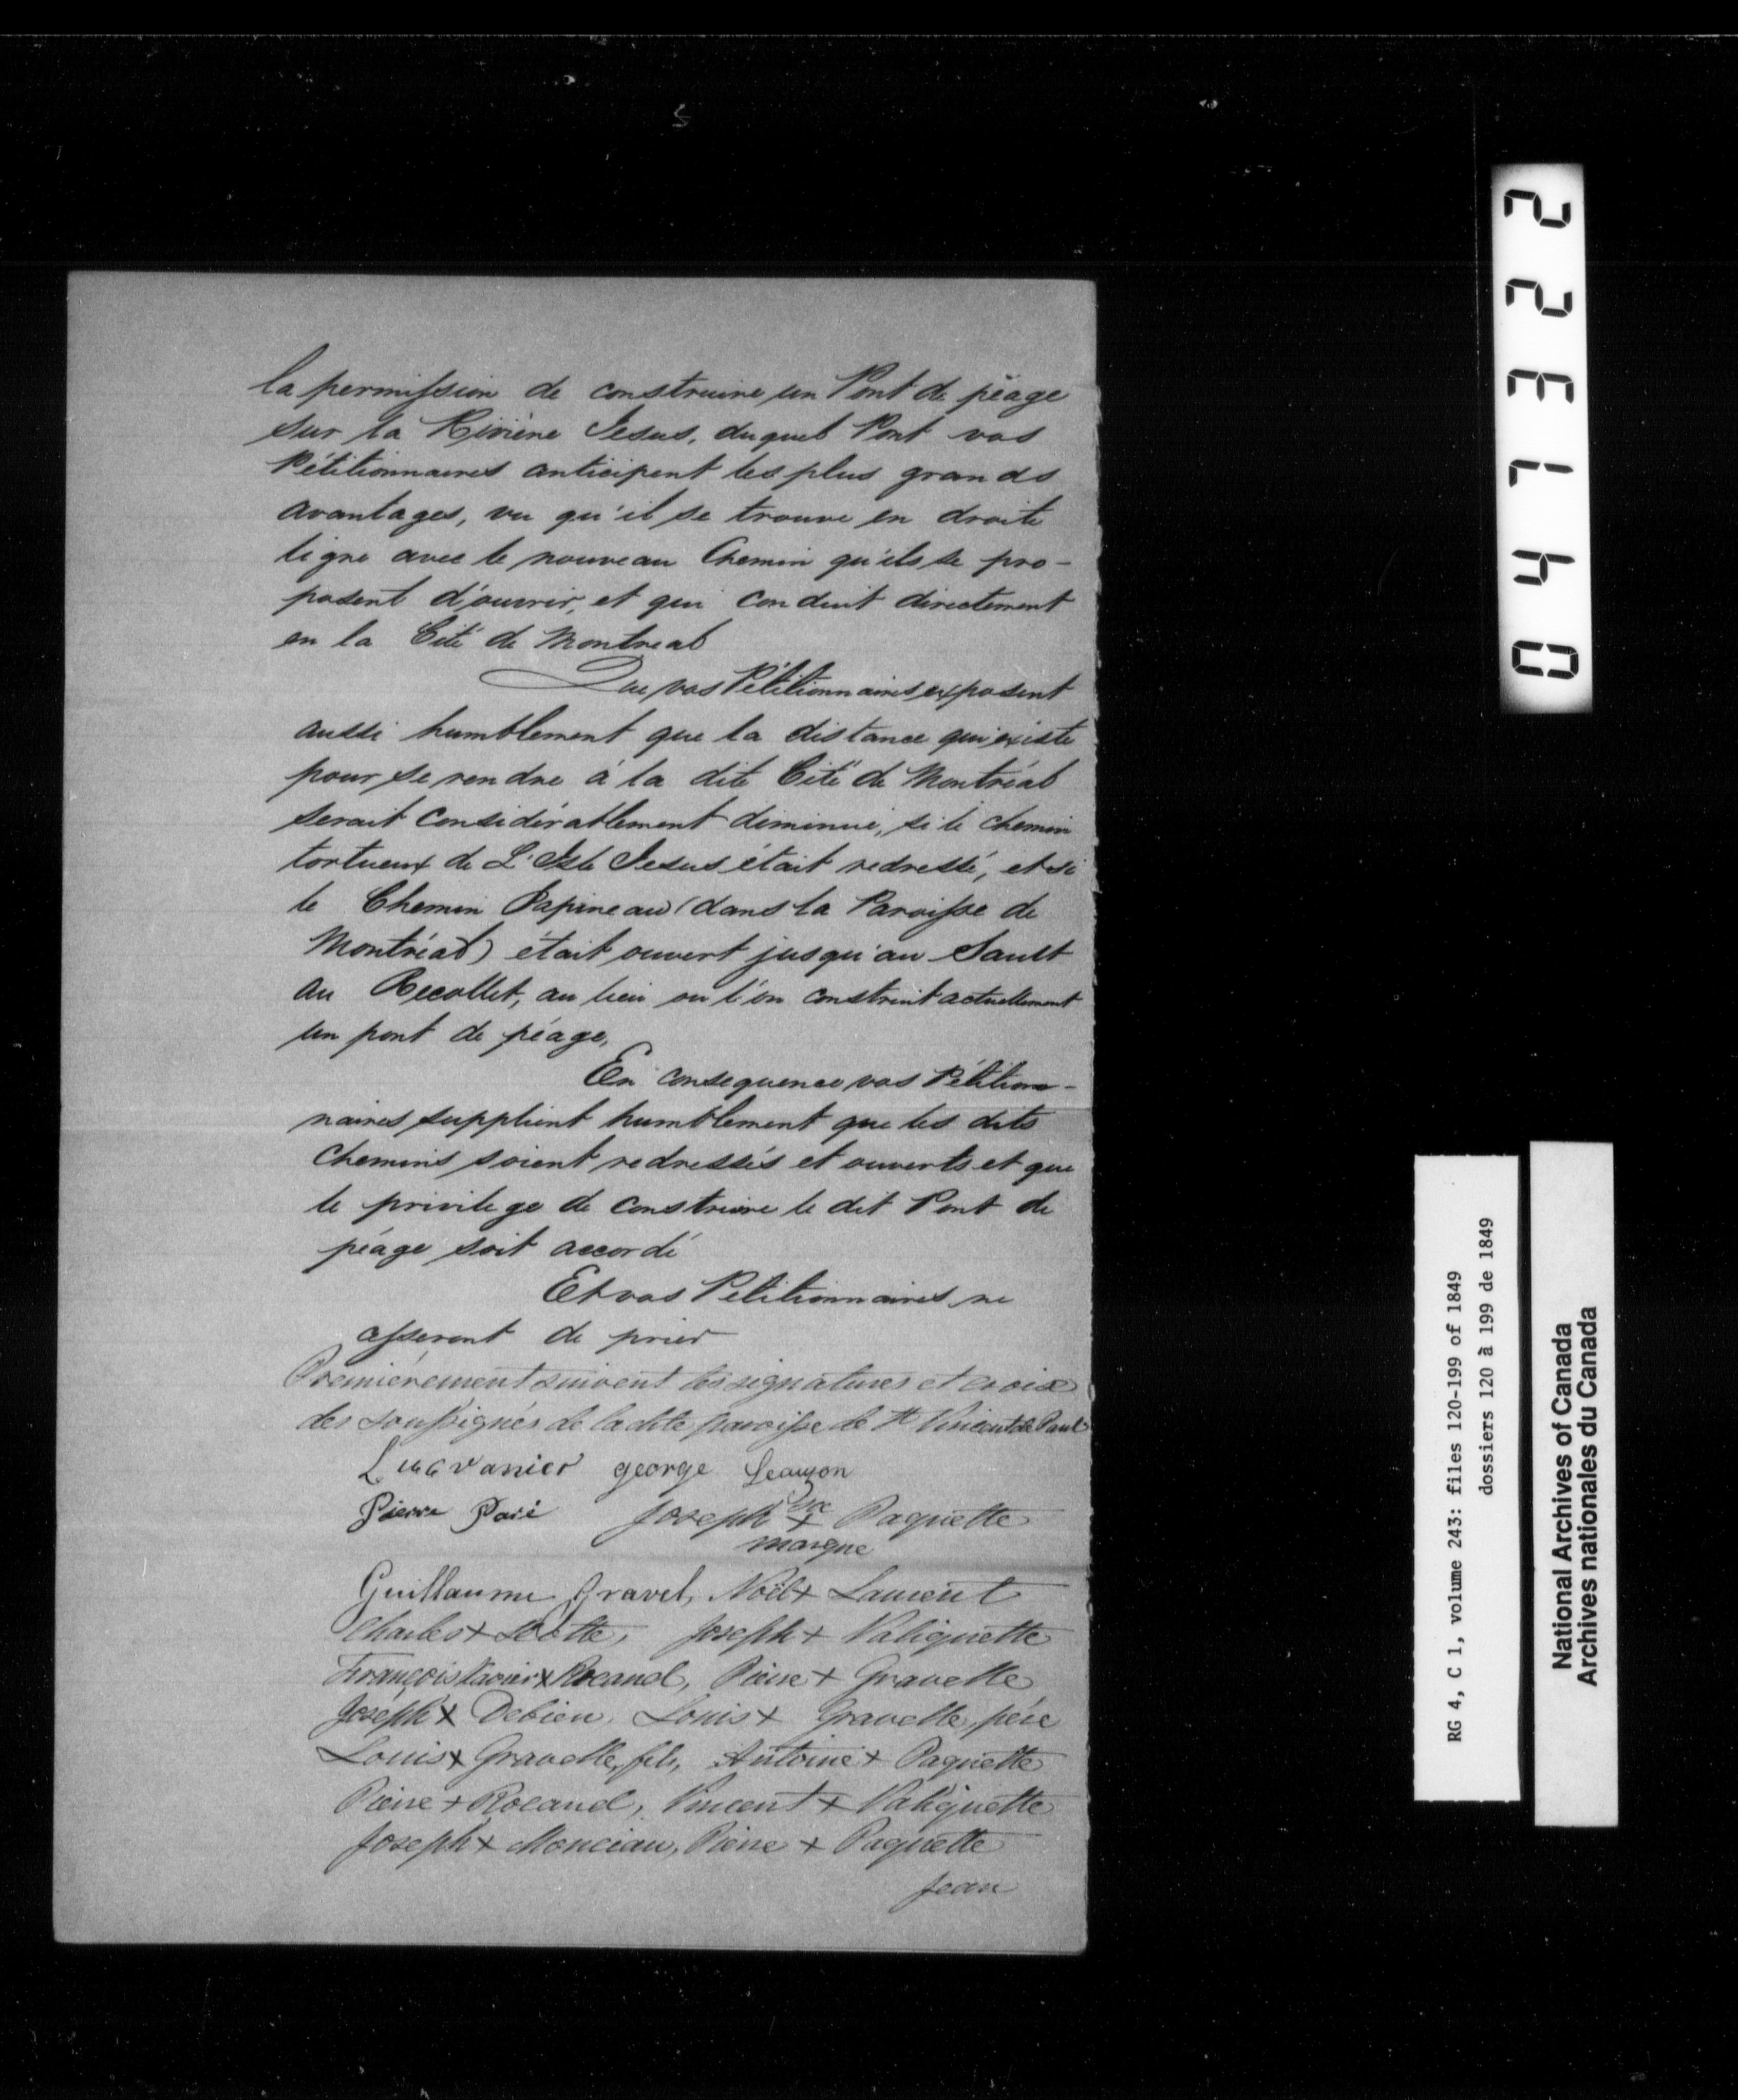 la permission de construire un Pont de péage
sur la Rivière Jesus, duquel Pont vos
Pétitionnaires anticipent les plus grands
avantages, vu qu'il se trouve en droite
ligne avec le nouveau Chemin qu'ils se pro-
posent d'ouvrir, et qui conduit directement
en la Cité de Montreal
Que vos Pétitionnaires exposent
aussi humblement que la distance qui existe
pour se rendre à la dite Cité de Montréal
serait considérablement diminué, si le chemin
tortueux de L'Isle Jesus était redressé, et si
le Chemin Papineau (dans la Paroisse de
Montréal) était ouvert jusqu'au Sault
au Recollet, au lieu ou l'on construit actuellement
un pont de péage,
En consequence vos Pétition-
naires supplient humblement que les dits
chemins soient redressés et ouverts et que
le privilege de construire le dit Pont de
péage soit accordé
Et vos Petitionnaires ne
cesseront de prier
Premièrement suivent les signatures et croix
des soussignés de la dite paroisse de St Vincent de Paul
Luc Vanier george Leauzon
Pierre Paré Joseph sa + Paquette
marque
Guillaume Gravel, Noël + Laurent
Charles + Léotte, Joseph + Valiquette
François Xavier x Rocand, Pierre + Gravelle
Joseph x Debien, Louis + Gravelle, père
Louis x Gravelle, fils, Antoine + Paquette
Pierre + Rocand, Vincent + Valiquette
Joseph + Monciau, Pierre + Paquette
Jean
047322
RG 4, C 1, volume 243: files 120-199 of 1849
dossiers 120 à 199 de 1849
National Archives of Canada
Archives nationales du Canada